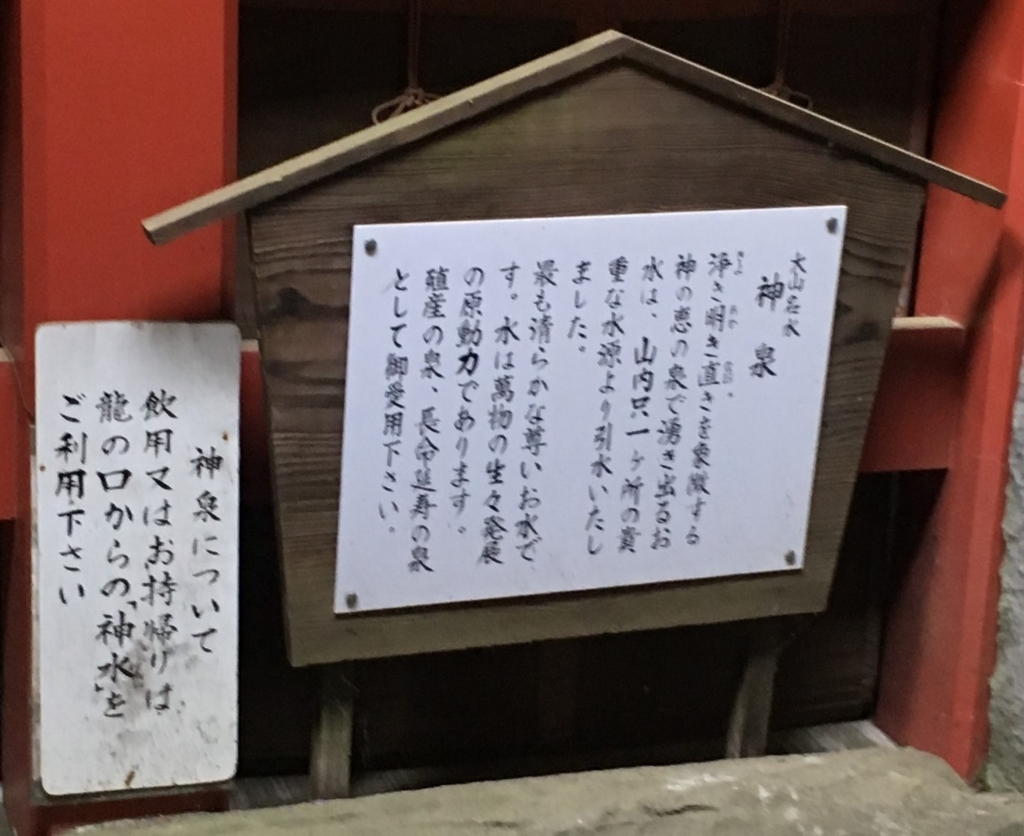 大山名水
神泉
浄き明き直きを象徴する
神の恵の泉で湧き出るお
水は、山内只一ヶ所の貴
重な水源より引水いたし
ました。
最も清らかな尊いお水で
す。水は萬物の生々発展
の原動力であります。
殖産の泉、長命延寿の泉
として御愛用下さい。
神泉について
飲用又はお持帰りは
龍の口からの「神水」を
ご利用下さい